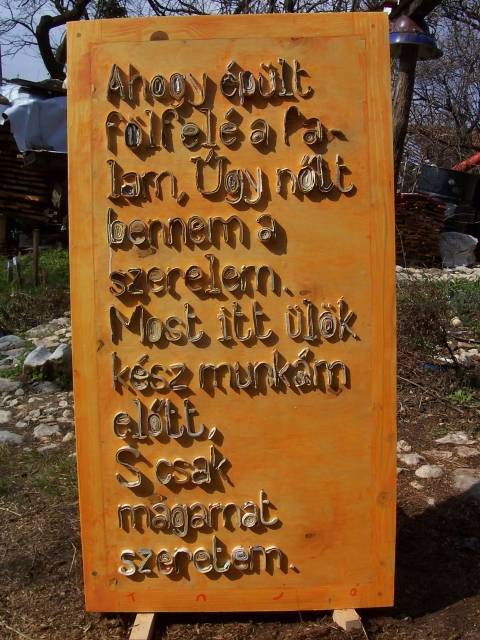 Ahogy épült
fölfelé a fa-
lam, Úgy nőlt
bennem a
szerelem.
Most itt ülök
kész munkám
előtt,
S csak
magamat
szeretem.